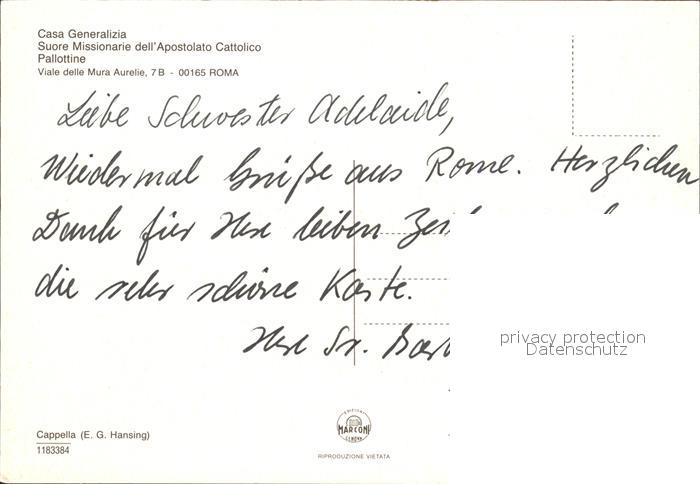 Casa Generalizia
Suore Missionarie dell'Apostolato Cattolico
Pallottine
Viale delle Mura Aurelie, 7B - 00165 ROMA
Liebe Schwester Adelaide,
Wiedermal Grüße aus Rome. Herzlichen
Dank für Ihre lieben
die sehr schöne Karte.
Ihre Sr.
privacy protection
Datenschutz
Cappella (E. G. Hansing)
1183384
EDIZIONI
MARCONI
GENOVA
RIPRODUZIONE VIETATA